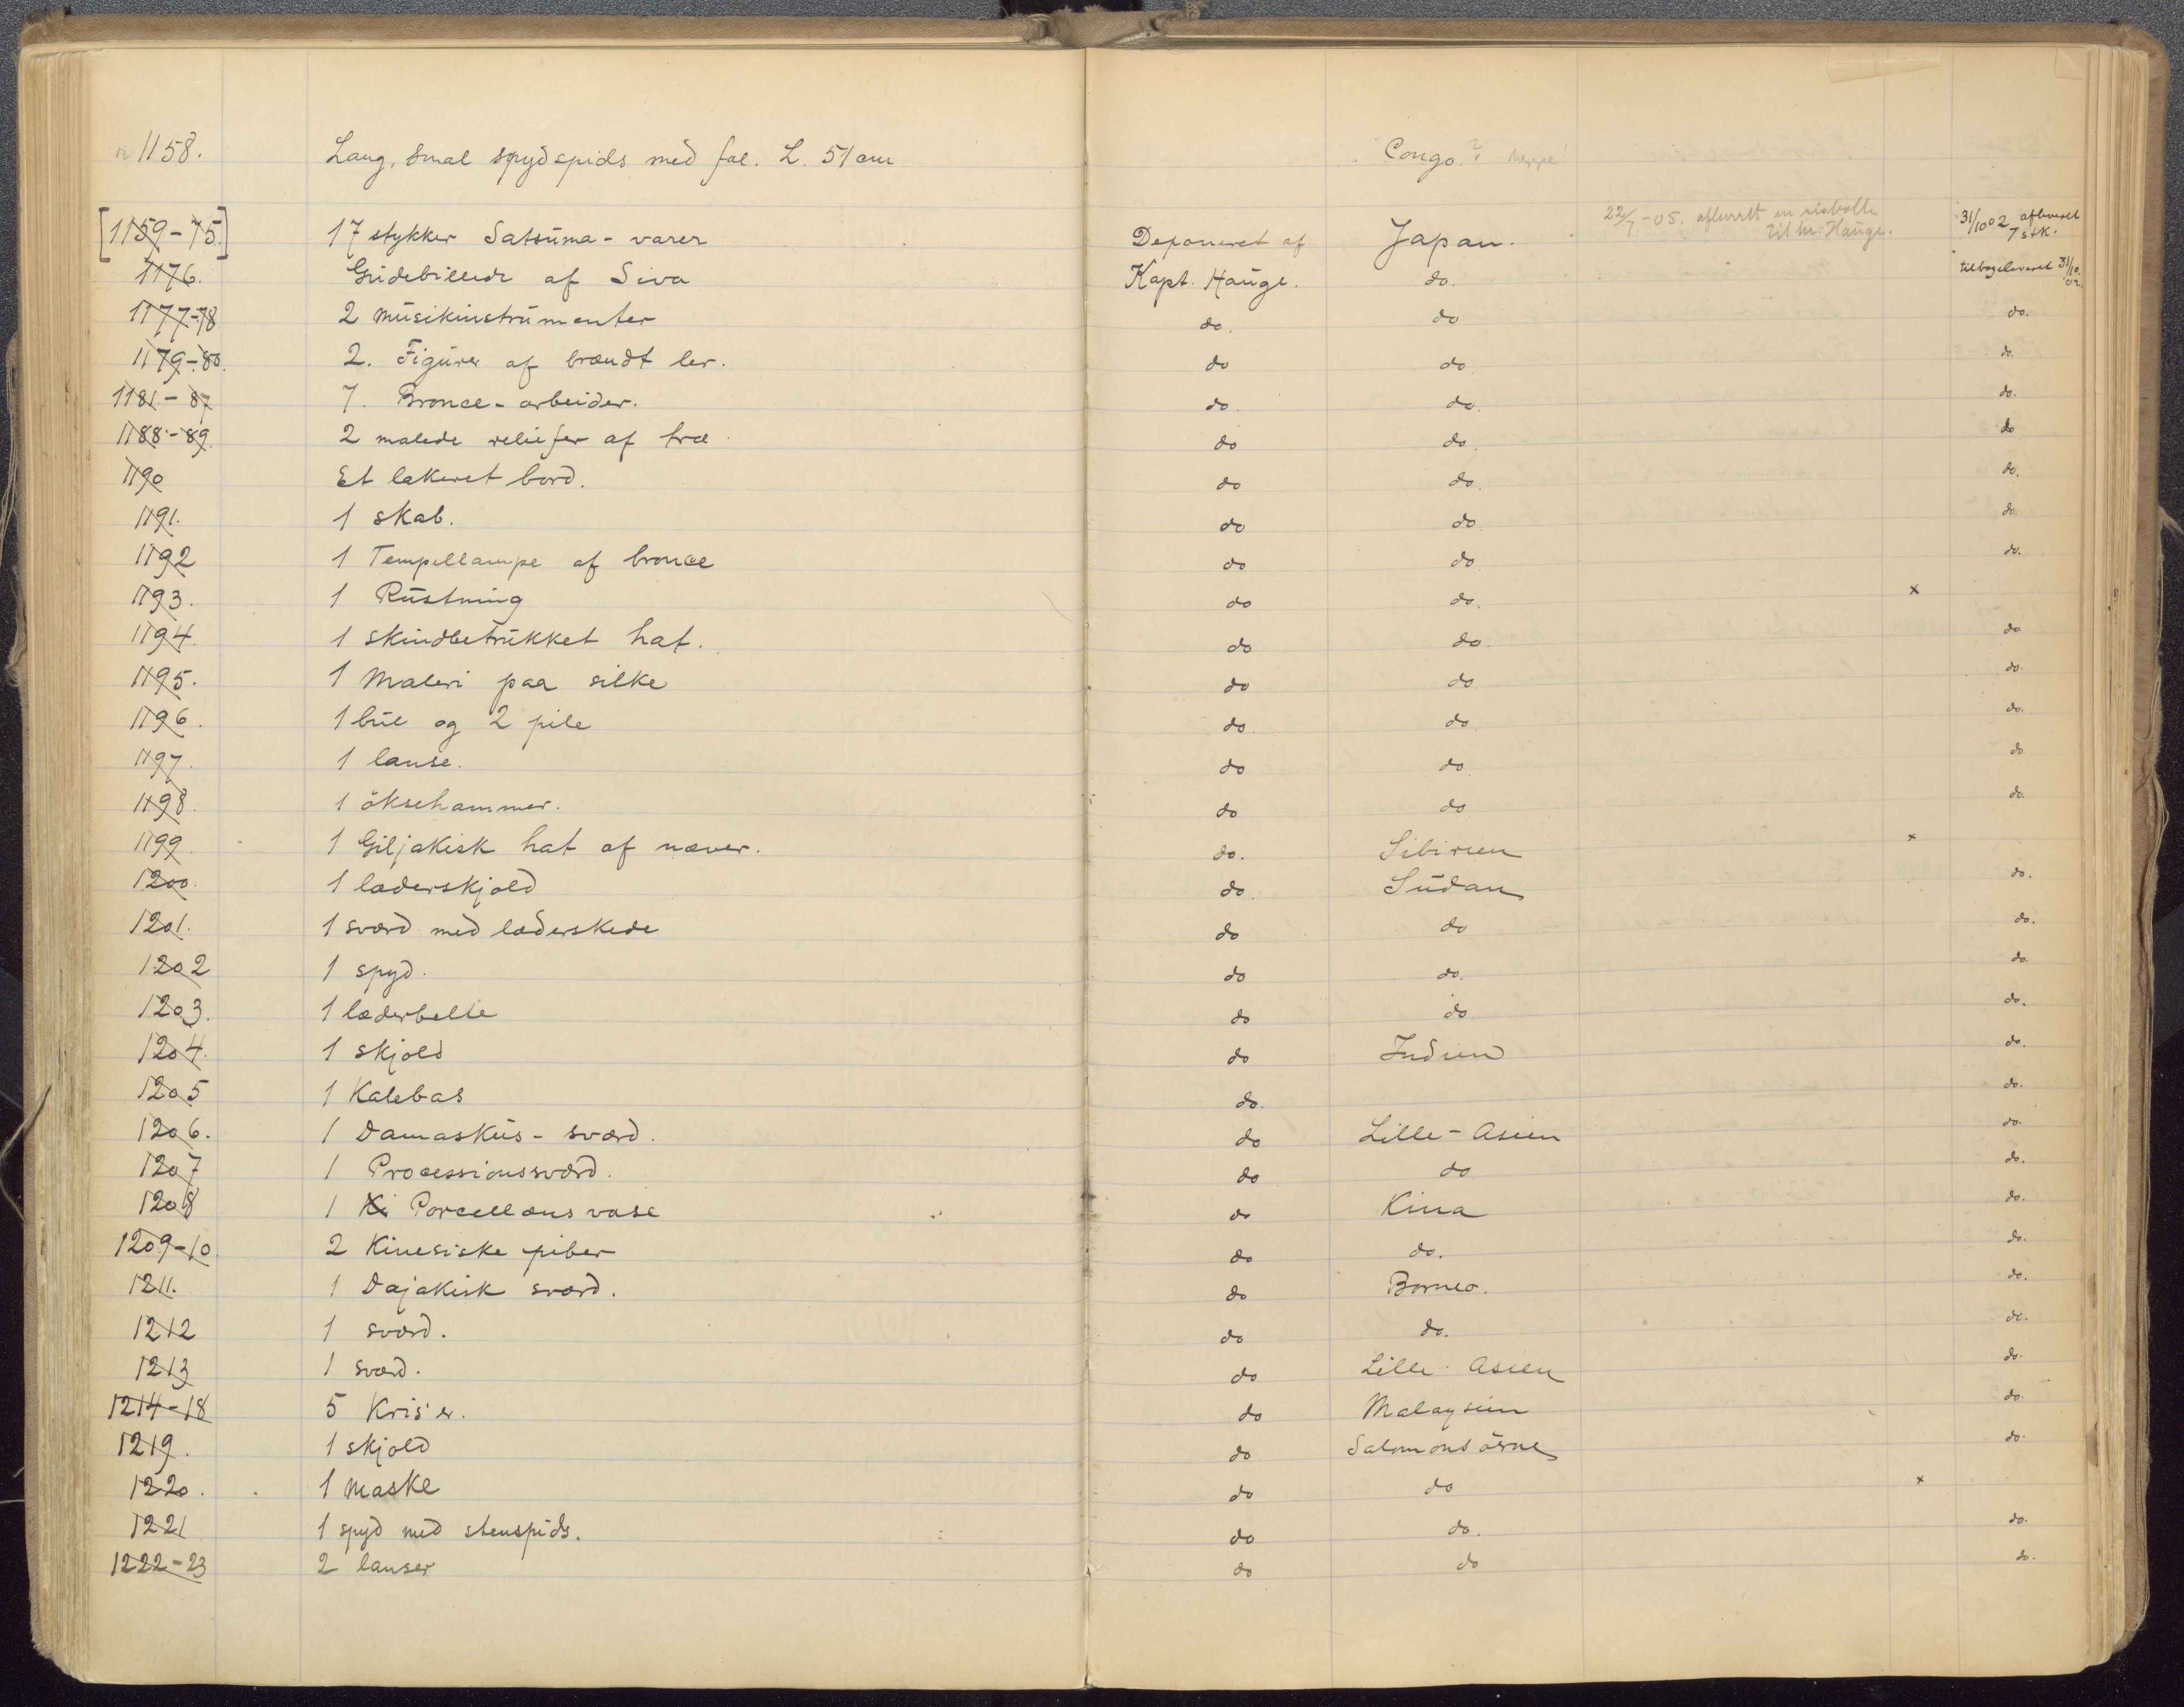 1158. Lang, smal spydspids med fal. L. 51 cm Congo ? neppe!
[1159-75.] 17 stykker Satsuma-varer Deponeret af Japan. 22/7-05. afleveret en risbolle til hr. Hauge. 31/10 02 afleveret 7 stk.
1176. Gudebillede af Siva Kapt. Hauge. do. tilbageleveret 31/10 02.
1177-78 2 Musikinstrumenter do. do do.
1179-80. 2. Figurer af brændt ler. do do do.
1181-87 7. Bronce-arbeider. do. do. do.
1188-89. 2 malede relieffer af træ. do do. do
1190 Et lakeret bord. do do. do.
1191. 1 skab. do do. do.
1192 1 Tempellampe af bronce do do do.
1193. 1 Rustning do do. x
1194. 1 skindbetrukket hat. do do. do.
1195. 1 Maleri paa silke do do do.
1196. 1 bue og 2 pile do. do. do.
1197. 1 lanse. do do. do.
1198. 1 öksehammer. do do do.
1199. 1 Giljakisk hat af næver. do. Sibirien x
1200. 1 læderskjold do. Sudan do.
1201. 1 sværd med læderskede do do do.
1202 1 spyd. do do. do.
1203. 1 læderbelte do do. do.
1204. 1 skjold do Indien do.
1205 1 Kalebas do. do.
1206. 1 Damaskus-sværd. do Lille-Asien do.
1207 1 Processionssværd. do do do.
1208 1 Ki Porcellæns vase do Kina do.
1209-10. 2 Kinesiske piber do do. do.
1211. 1 Dajakisk sværd. do Borneo. do.
1212 1 sværd. do do. do.
1213 1 sværd. do Lille-Asien do.
1214-18 5 Kris'er. do Malaysien do.
1219. 1 skjold do Salomonsörne do.
1220. 1 Maske do do x
1221 1 spyd med stenspids. do do. do.
1222-23 2 lanser do do do.